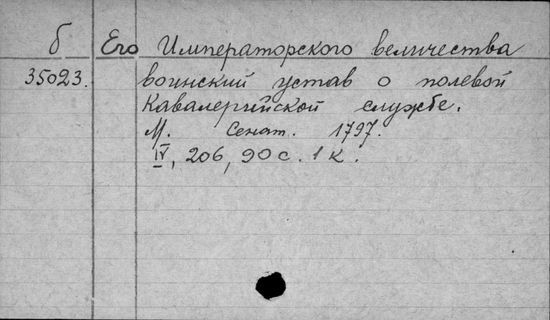 б Его Императорского величества
35023. воинский устав о полевой
Кавалерийской службе.
М. Сенат. 1797.
IV, 206, 90 с. 1 к.